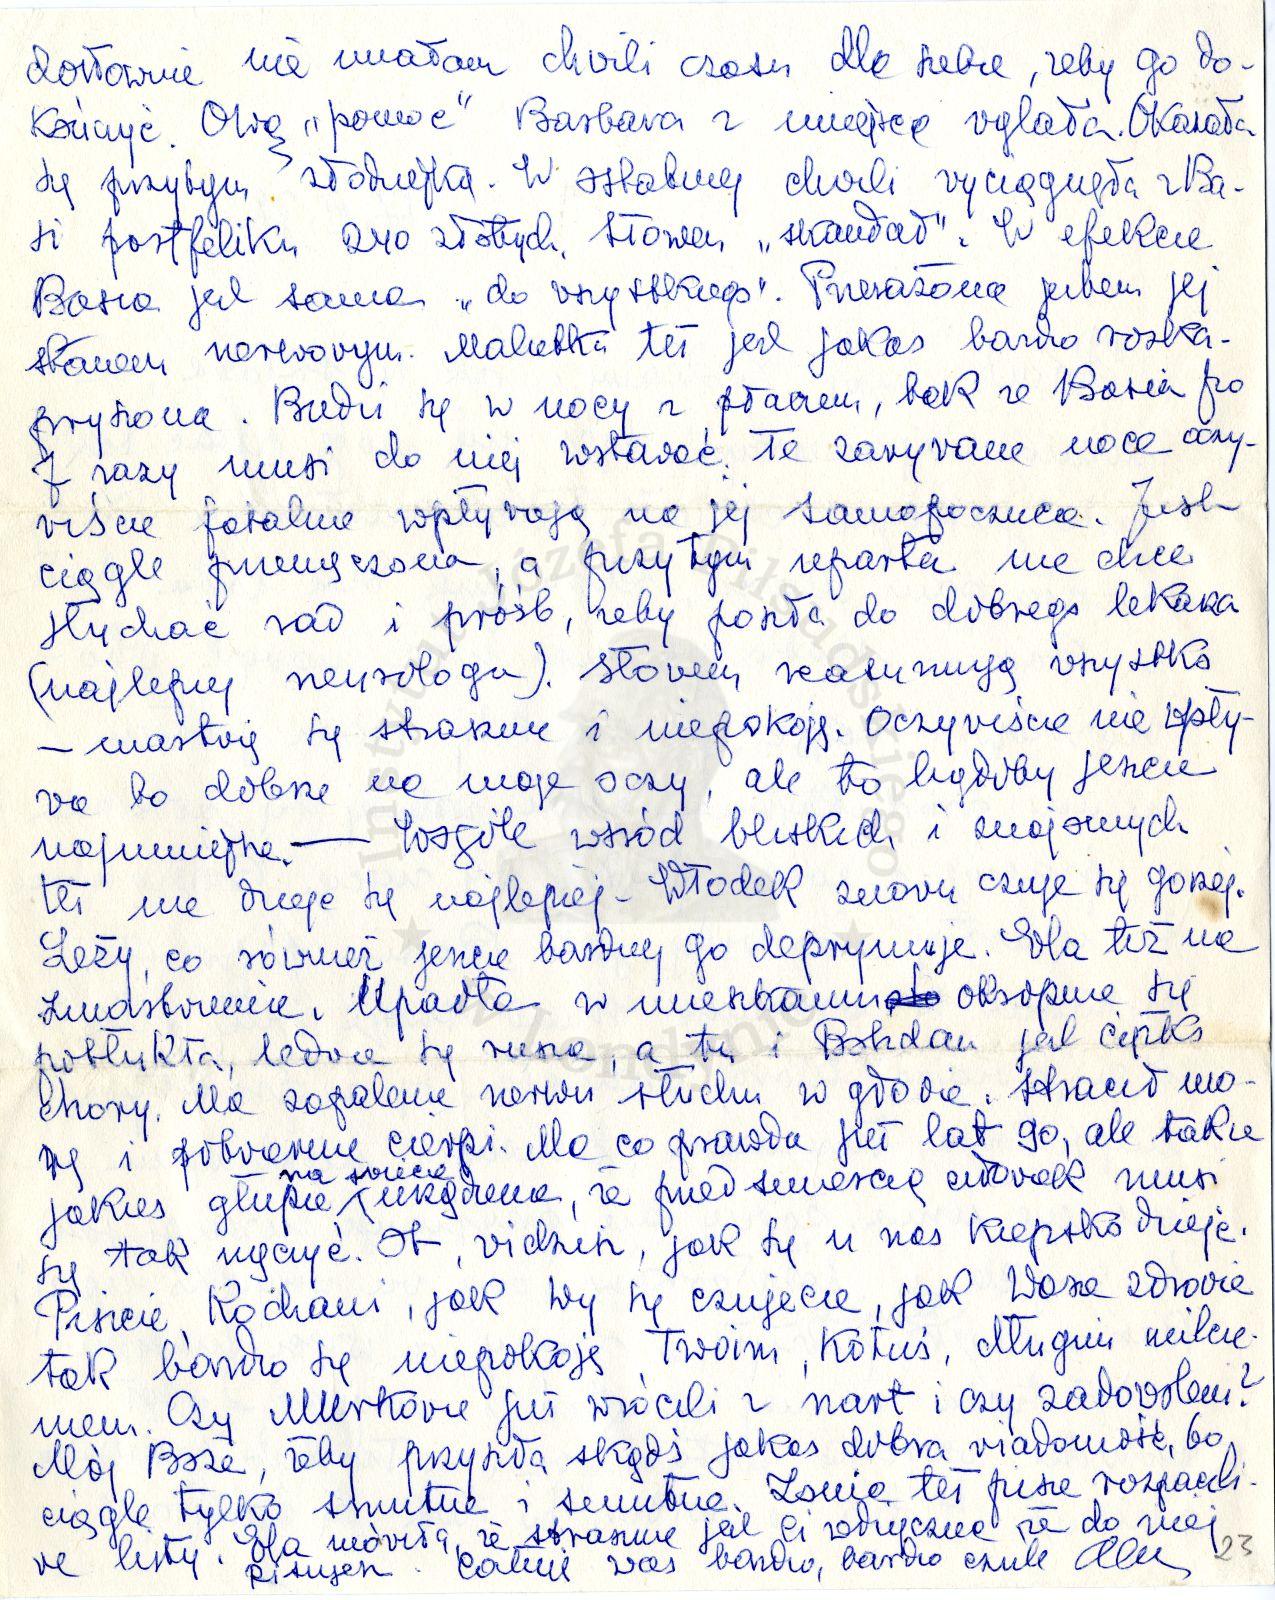 dosłownie nie miałam chwili czasu dla siebie, żeby go do-
kończyć. Ową „pomoc” Barbara z miejsca wylała. Okazała
się przytym złodziejką. W ostatniej chwili wyciągnęła z Ba-
si portfeliku 240 złotych. Słowem „skandal”. W efekcie
Basia jest sama „do wszystkiego”. Przerażona jestem jej
stanem nerwowym. Malutka też jest jakaś bardzo rozka-
pryszona. Budzi się w nocy z płaczem, tak że Basia po
7 razy musi do niej wstawać. Te zarywane noce oczy-
wiście fatalnie wpływają na jej samopoczucie. Jest
ciągle przemęczona, a przytym uparta nie chce
słuchać rad i próśb, żeby poszła do dobrego lekarza
(najlepiej neurologa). Słowem reasumując wszystko
– martwię się strasznie i niepokoję. Oczywiście nie wpły-
wa to dobrze na moje oczy, ale to byłoby jeszcze
najmniejsze. — Wogóle wśród bliskich i znajomych
też nie dzieje się najlepiej – Włodek znowu czuje się gorzej.
Leży, co również jeszcze bardziej go deprymuje. Ela też ma
zmartwienie. Upadła w mieszkaniu okropnie się
potłukła, ledwie się rusza, a tu i Bohdan jest ciężko
chory. Ma zapalenie nerwu słuchu w głowie. Stracił mo-
wę i potwornie cierpi. Ma co prawda już lat 90, ale takie
na świecie
jakieś głupie urządzenie, że przed śmiercią człowiek musi
się tak męczyć. Ot, widzisz, jak się u nas kiepsko dzieje.
Piszcie, Kochani, jak Wy się czujecie, jak Wasze zdrowie
tak bardzo się niepokoję Twoim, Kotuś, długim milcze-
niem. Czy Mirkowie już wrócili z nart i czy zadowoleni?
Mój Boże, żeby przyszła skądś jakaś dobra wiadomość, bo
ciągle tylko smutne i smutne. Zosia też pisze rozpaczli-
we listy. Ela mówiła, że strasznie jest Ci wdzięczna że do niej
piszesz. Całuję was bardzo, bardzo czule
23
Instytut Józefa Piłsudskiego
w Londynie